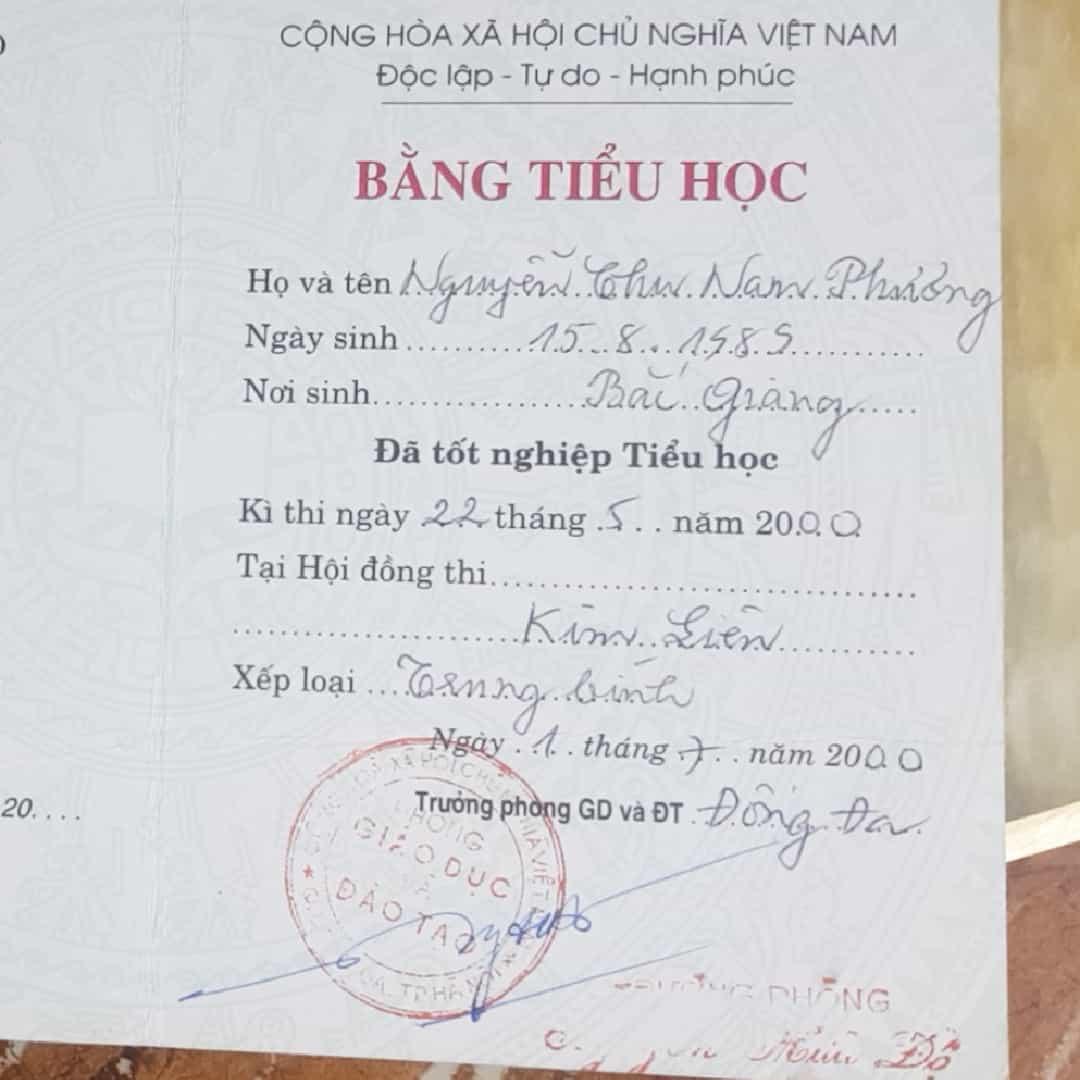 CỘNG HÒA XÃ HỘI CHỦ NGHĨA VIỆT NAM
Độc lập - Tự do - Hạnh phúc
BẰNG TIỂU HỌC
Họ và tên Nguyễn Thu Nam Phương
Ngày sinh ..........15..8...1989............
Nơi sinh................Bắc Giang.....
Đã tốt nghiệp Tiểu học
Kì thi ngày 22 tháng .5... năm 2000
Tại Hội đồng thi................................
.....................Kim Liên.............
Xếp loại ...Trung bình
Ngày .1.. tháng 7... năm 2000
20....
Trưởng phòng GD và ĐT .Đống Đa
PHÒNG
GIÁO DỤC
VÀ
ĐÀO TẠO
TRƯỞNG PHÒNG
Hữu Độ